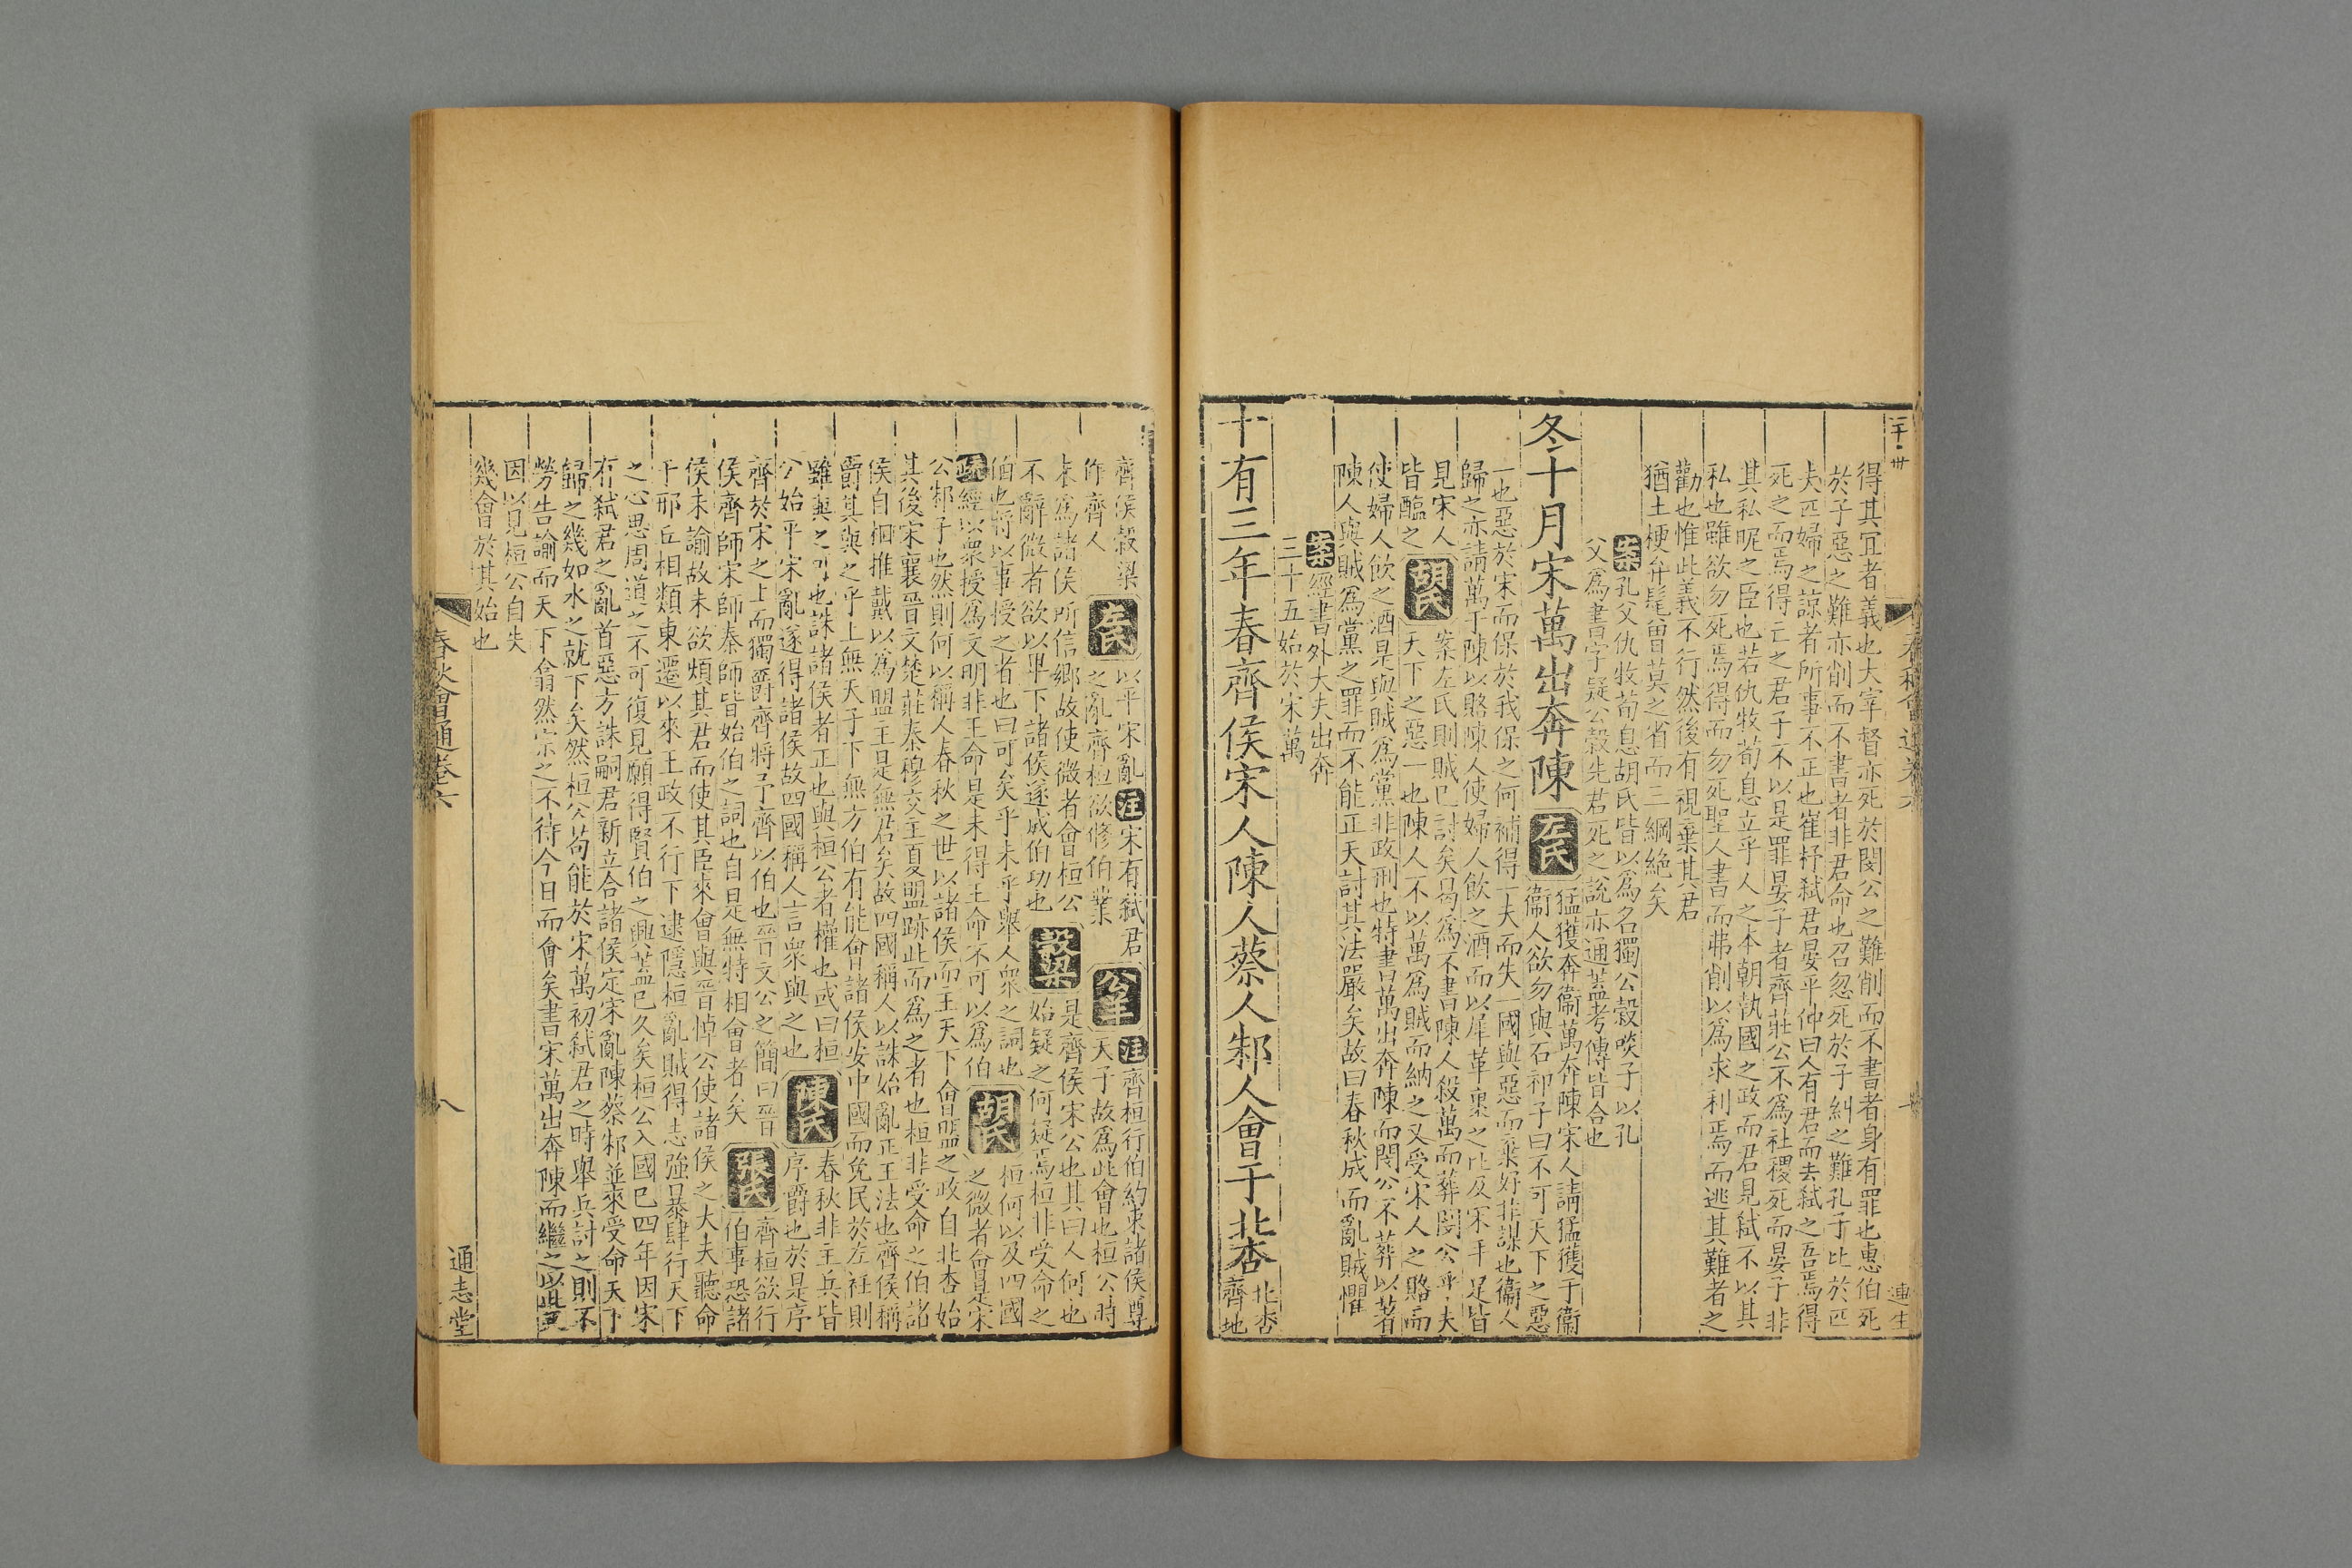 得其宜者義也大宰督亦死於閔公之難削而不書者身有罪也惠伯死
於子惡之難亦削而不書者非君命也召忽死於子糾之難孔子比於匹
夫匹婦之諒者所事不正也崔杼弑君晏平仲曰人有君而去弑之吾焉得
死之而焉得亡之君子不以是罪晏子者齊莊公不為社稷死而晏子非
其私昵之臣也若仇牧荀息立乎人之本朝執國之政而君見弑不以其
私也雖欲勿死焉得而勿死聖人書而弗削以為求利焉而逃其難者之
勸也惟此義不行然後有視棄其君
猶土梗弁髦曾莫之省而三綱絶矣
案孔父仇牧荀息胡氏皆以為名獨公穀啖子以孔
父爲書字疑公穀先君死之說亦通蓋考傳皆合也
冬十月宋萬出奔陳
左氏
猛獲奔衞萬奔陳宋人請猛獲于衞
衞人欲勿與石祁子曰不可天下之惡
一也惡於宋而保於我保之何補得一夫而失一國與惡而棄好非謀也衞人
歸之亦請萬于陳以賂陳人使婦人飲之酒而以犀革裹之比及宋手足皆
見宋人
皆醢之
胡氏
案左氏則賊已討矣曷為不書陳人殺萬而葬閔公乎夫
天下之惡一也陳人不以萬為賊而納之又受宋人之賂而
使婦人飲之酒是與賊爲黨非政刑也特書萬出奔陳而閔公不葬以著
陳人與賊爲黨之罪而不能正天討其法嚴矣故曰春秋成而亂賊懼
案經書外大夫出奔
三十五始於宋萬
十有三年春齊侯宋人陳人蔡人邾人會于北杏
北杏
齊地
齊侯穀梁
作齊人
左氏
以平宋亂注宋有弑君
之亂齊桓欲修伯業
公羊
注齊桓行伯約束諸侯尊
天子故為此會也桓公時
未爲諸侯所信鄉故使微者會桓公
不辭微者欲以卑下諸侯遂成伯功也
穀梁
是齊侯宋公也其曰人何也
始疑之何疑焉桓非受命之
伯也將以事授之者也曰可矣乎未乎舉人衆之詞也
疏經以衆授爲文明非王命是未得王命不可以為伯
胡氏
桓何以及四國
之微者會是宋
公邾子也然則何以稱人春秋之世以諸侯而主天下會盟之政自北杏始
其後宋襄晉文楚莊秦穆交主夏盟跡此而為之者也桓非受命之伯諸
侯自相推戴以為盟主是無君矣故四國稱人以誅始亂正王法也齊侯稱
爵其與之乎上無天子下無方伯有能會諸侯安中國而免民於左衽則
雖與之可也誅諸侯者正也與桓公者權也或曰桓
公始平宋亂遂得諸侯故四國稱人言衆與之也
陳氏
春秋非主兵皆
序爵也於是序
齊於宋之上而獨爵齊將予齊以伯也晉文公之簡曰晉
侯齊師宋師秦師皆始伯之詞也自是無特相會者矣
張氏
齊桓欲行
伯事恐諸
侯未諭故未欲煩其君而使其臣來會與晉悼公使諸侯之大夫聽命
于邢丘相類東遷以來王政不行下逮隱桓亂賊得志強暴肆行天下
之心思周道之不可復見願得賢伯之興蓋已久矣桓公入國已四年因宋
有弑君之亂首惡方誅嗣君新立合諸侯定宋亂陳蔡邾並來受命天下
歸之幾如水之就下矣然桓公苟能於宋萬初弑君之時舉兵討之則不
勞告諭而天下翕然宗之不待今日而會矣書宋萬出奔陳而繼之以此
因以見桓公自失
幾會於其始也
春秋會通卷六
八
通志堂